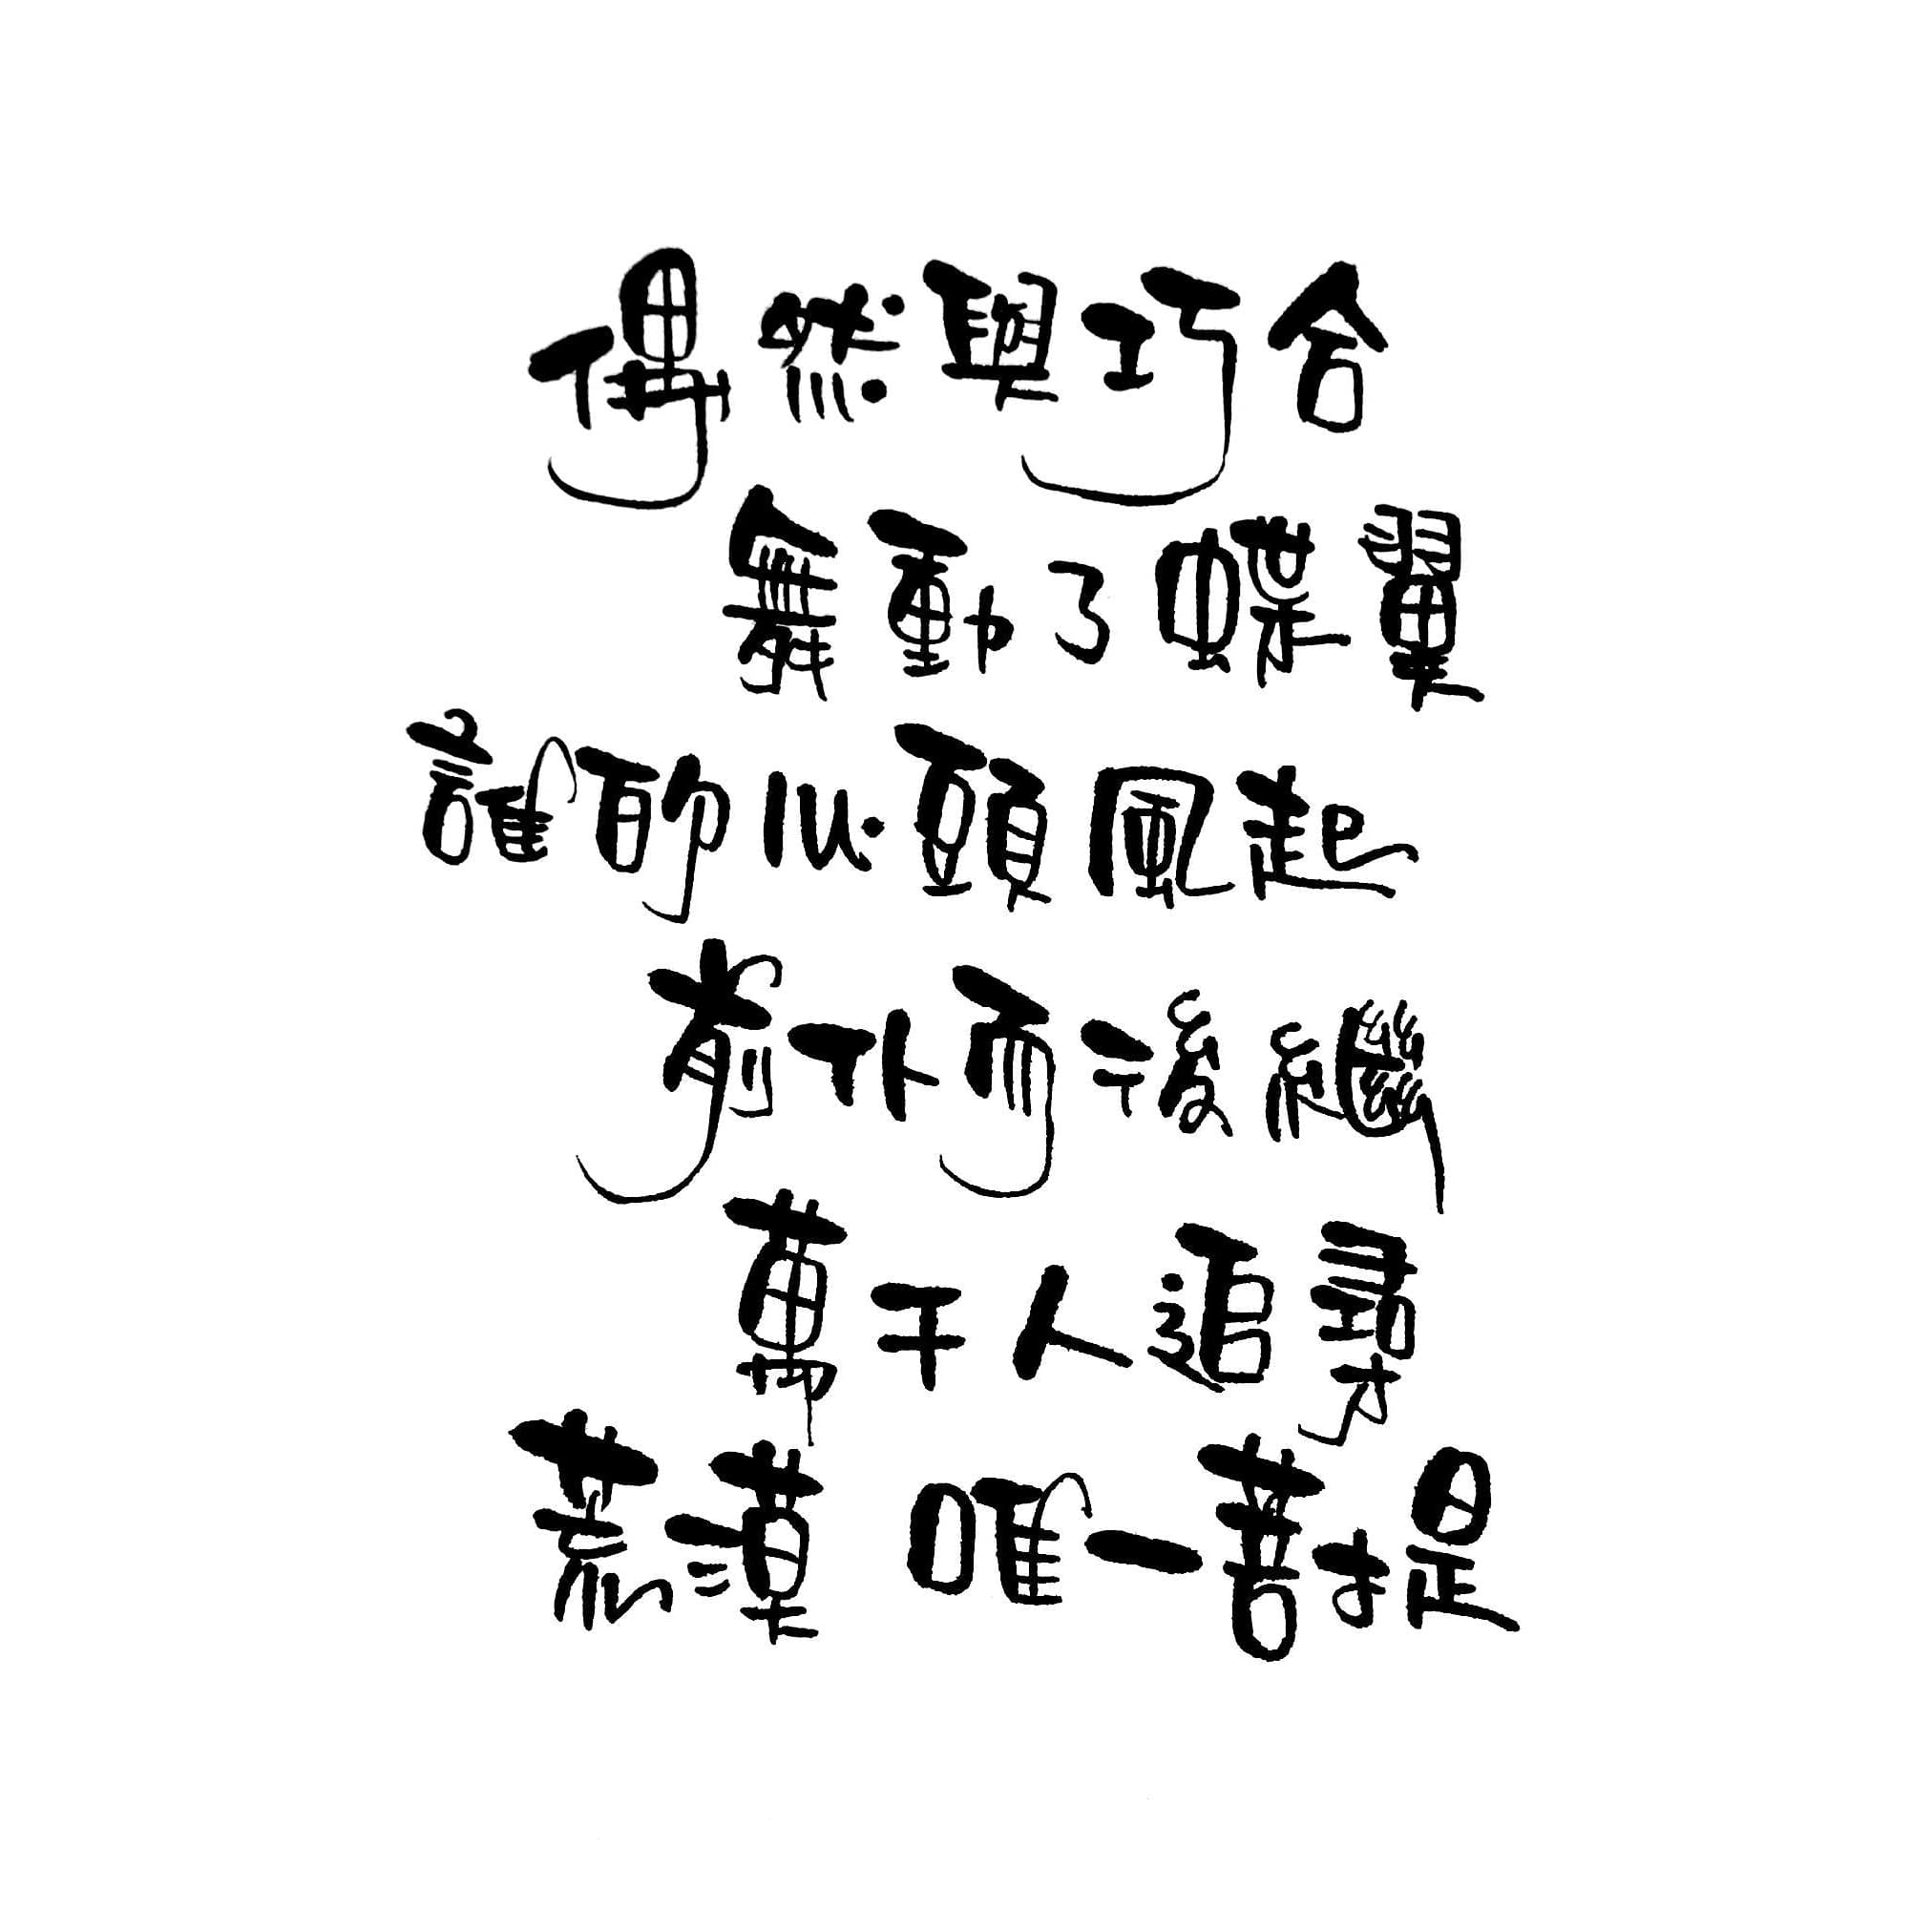 偶然與巧合
舞動了蝶翼
誰的心頭風起
前仆而後繼
萬千人追尋
荒漠 唯一菩提